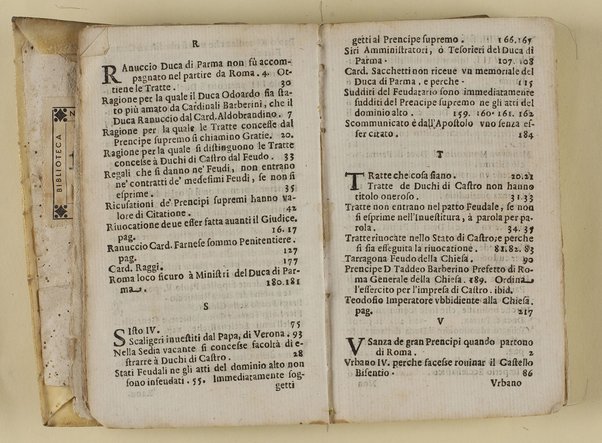 BIBLIOTECA
R
RAnuccio Duca di Parma non fù accom-
pagnato nel partire da Roma. 4. Ot-
tiene le Tratte. 30
Ragione per la quale il Duca Odoardo sia sta-
to più amato da Cardinali Barberini, che il
Duca Ranuccio dal Card. Aldobrandino. 7
Ragione per la quale le Tratte concesse dal
Prencipe supremo si chiamino Gratie. 20.
Ragione per la quale si distinguono le Tratte
concesse à Duchi di Castro dal Feudo. 33
Regali che si danno ne' Feudi, non entrano
ne' contratti de' medesimi Feudi, se non si
esprime. 35
Ricusationi de' Principi supremi hanno va-
lore di Citatione. 42
Riuocatione deue esser fatta auanti il Giudice.
pag. 16. 17
Ranuccio Card. Farnese sommo Penitentiere.
pag. 127
Card. Raggi. 177
Roma loco sicuro à Ministri del Duca di Par-
ma. 180. 181
S
SIsto IV. 75
Scaligeri inuestiti dal Papa, di Verona. 93
Nella Sedia vacante si concesse facoltà di e-
strarre à Duchi di Castro. 28
Stati Feudali ne gli atti del dominio alto non
sono infeudati. 55. Immediatamente sog-
getti
getti al Prencipe supremo. 166. 165
Siri Amministratori, ò Tesorieri del Duca di
Parma. 107. 108
Card. Sacchetti non riceuè vn memoriale del
Duca di Parma, e perche. 115
Sudditi del Feudatario sono immediatamente
sudditi del Prencipe supremo ne gli atti del
dominio alto. 159. 160. 161. 162
Scommunicato è dall'Apostolo vno senza es-
ser citato. 184
T
TRatte che cosa siano. 20. 21
Tratte de Duchi di Castro non hanno
titolo oneroso. 31. 33
Tratte non entrano nel patto Feudale, se non
si esprime nell'Inuestitura, à parola per pa-
rola. 34. 35
Tratte riuocate nello Stato di Castro, e perche
si sia esseguita la riuocatione. 81. 82. 83
Tarragona Feudo della Chiesa. 90
Prencipe D Taddeo Barberino Prefetto di Ro-
ma Generale della Chiesa. 189. Ordina
l'essercito per l'impresa di Castro. ibid.
Teodosio Imperatore vbbidiente alla Chiesa.
pag. 217
V
VSanza de gran Prencipi quando partono
di Roma. 2
Vrbano IV. perche facesse rouinar il Castello
Bisentio. 86
Vrbano